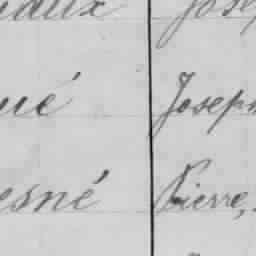 iaux Jose
ué Joseph
esné Pierre,